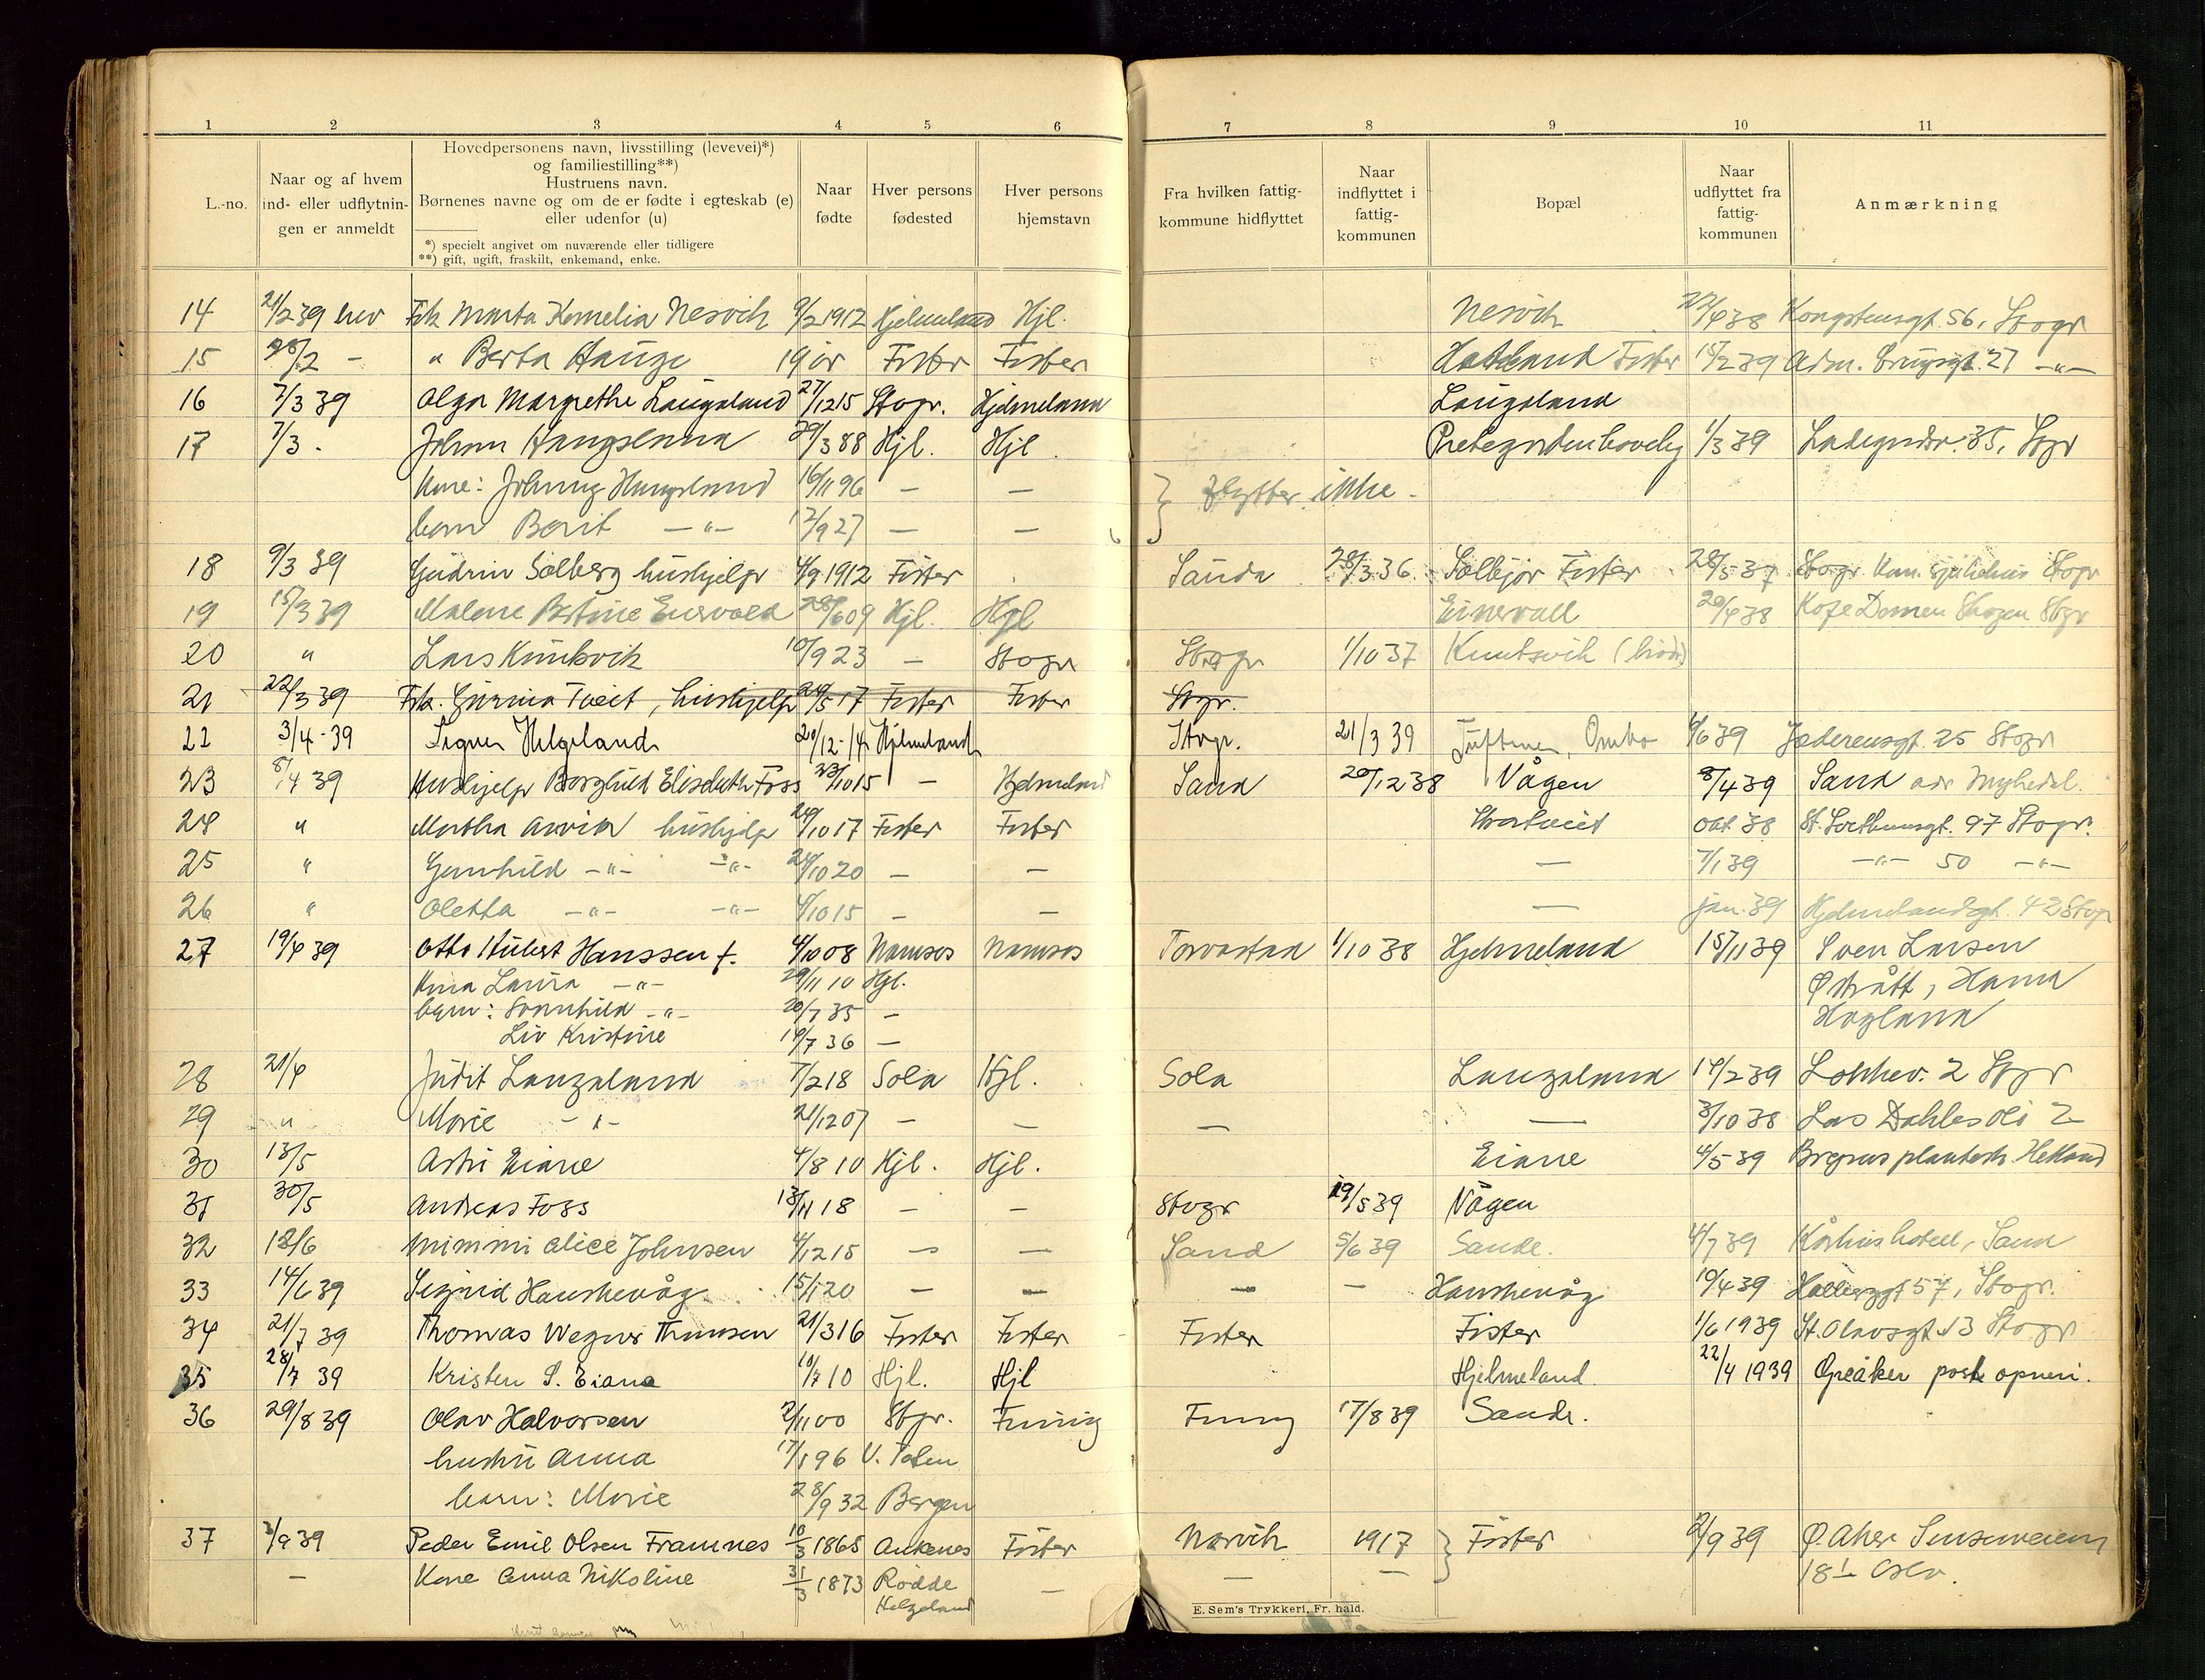 1 2 3 4 5 6 7 8 9 10 11
L.-no.
Naar og af hvem
ind- eller udflytnin-
gen er anmeldt
Hovedpersonens navn, livsstilling (levevei)*)
og familiestilling**)
Hustruens navn.
Børnenes navne og om de er fødte i egteskab (e)
eller udenfor (u)
*) specielt angivet om nuværende eller tidligere
**) gift, ugift, fraskilt, enkemand, enke.
Naar
fødte
Hver persons
fødested
Hver persons
hjemstavn
Fra hvilken fattig-
kommune hidflyttet
Naar
indflyttet i
fattig-
kommunen
Bopæl
Naar
udflyttet fra
fattig-
kommunen
Anmærkning
14 21/2 39 Frk Marta Kornelia Nesvik 9/2 1912 Hjelmeland Hjl. Nesvik 22/4 38 Kongsteinsgt. 56, Stvgr
15 28/2 - " Berta Hauge 19 år Fister Fister Fister 14/2 39 27 -"-
16 7/3 39 Olga Margrethe Laugaland 27/12 15 Stvgr. Hjelmeland Laugaland
17 7/3 . Johan Haugsland 29/3 88 Hjl. Hjl. 1/3 39 35, Stvgr
Kone: Haugsland 16/11 96 — — } flytter ikke -
barn Berit -"- 12/9 27 — —
18 9/3 39 Gudrun Solberg hushjelp 4/9 1912 Fister Sauda 28/3 36. Solbjør Fister 28/5 37 Stvgr Kom. sjukehus Stvgr
19 15/3 39 Malene Bertine Einervoll 28/6 09 Hjl. Hjl Einervoll 20/4 38 Kafe Stvgr
20 " Lars Knutsvik 10/9 23 — Stvgr Stvgr 1/10 37 Knutsvik
21 22/3 39 Frk. Gurina Tveit, hushjelp 24/5 17 Fister Fister Stvgr.
22 3/4 - 39 Signe Helgeland 20/12 - 14 Hjelmeland Stvgr. 21/3 39 Tuftene, Ombo 6/6 39 Jæderensgt. 25 Stvgr
23 8/4 39 Hushjelp Borghild Elisabeth Foss 23/10 15 — Hjelmeland Sand 20/12 38 Vågen 8/4 39 Sand adr
24 " Martha Arvik hushjelp 29/10 17 Fister Fister okt 38 97 Stvgr.
25 " Gunhild -"- -"- 24/10 20 — — — 7/1 39 -"- 50 -"-
26 " Oletta -"- -"- 4/10 15 — — — jan. 39 Hjelmelandsgt. 42 Stvgr
27 19/4 39 Otto Hubert Hanssen f. 4/10 08 Namsos Namsos Torvastad 1/10 38 Hjelmeland 15/11 39 Sven Larsen
Kona Laura -"- 29/11 10 Hjl. Østrått, Hana
barn: -"- 20/7 35 — Høgland
Liv Kristine 19/7 36 —
28 21/4 Judit Laugaland 7/2 18 Sola Hjl. Sola Laugaland 14/2 39 2 Stvgr
29 " Marie -"- 21/12 07 — — — — 3/10 38 Lars 2
30 13/5 Astri Eiane 4/8 10 Hjl. Hjl. Eiane 4/5 39 planteskole Hetland
31 30/5 Andreas Foss 13/11 18 — — Stvgr 19/5 39 Vågen
32 12/6 Mimmi Alice Johnsen 4/12 15 — — Sand 5/6 39 Sande. 4/7 39 Kårhus hotell, Sand
33 14/6 39 Sigrid Haushevåg 15/1 20 — — — — Haushevåg 19/4 39 57, Stvgr.
34 21/7 39 Thomas Wegner Thomsen 21/3 16 Fister Fister Fister Fister 1/6 1939 St. Olavsgt. 13 Stvgr
35 28/7 39 Kristen S. Eiana 10/7 10 Hjl. Hjl Hjelmeland 22/4 1939 Greåker post opneri.
36 29/8 39 Olav Halvorsen 2/11 00 Stvgr. 17/8 39 Sande.
hustru Anna 17/1 96
barn: Marie 28/9 32 Bergen
37 2/9 39 Peder Emil Olsen Framnes 10/3 1865 Ankenes Fister Narvik 1917 } Fister 2/9 39 Ø. Aker
— Kone Anna Nikoline 31/3 1873 Rødde — — — 18 Oslo.
Helgeland
E. Sem's Trykkeri, Fr. hald.